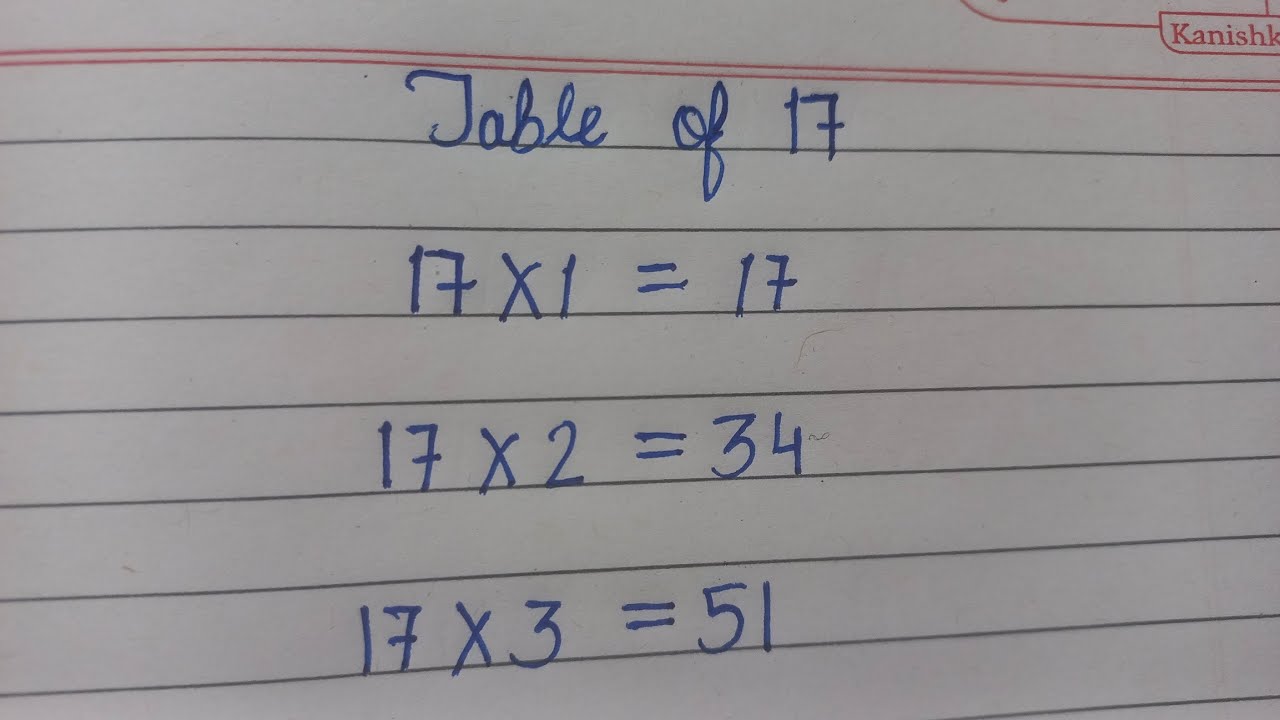 Kanishk
Table of 17
17 X 1 = 17
17 X 2 = 34
17 X 3 = 51